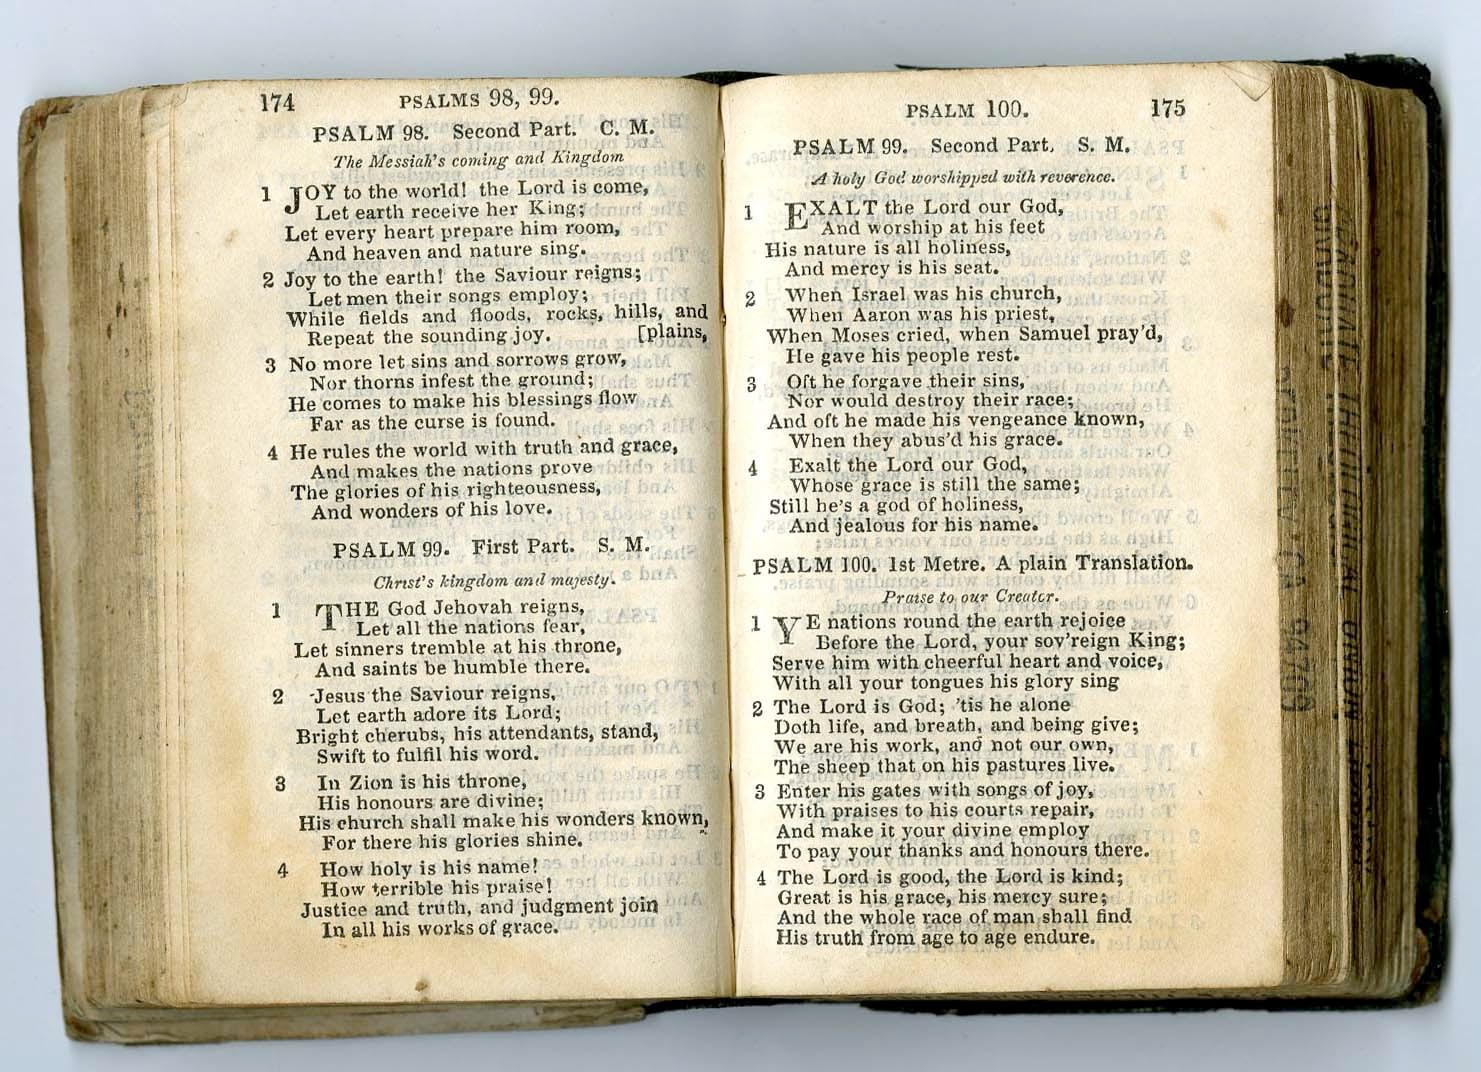 174
PSALMS 98, 99.
PSALM 98. Second Part. C. M.
The Messiah's coming and Kingdom
1 JOY to the world! the Lord is come,
Let earth receive her King;
Let every heart prepare him room,
And heaven and nature sing.
2 Joy to the earth! the Saviour reigns;
Let men their songs employ;
While fields and floods, rocks, hills, and
Repeat the sounding joy. [plains,
3 No more let sins and sorrows grow,
Nor thorns infest the ground;
He comes to make his blessings flow
Far as the curse is found.
4 He rules the world with truth and grace,
And makes the nations prove
The glories of his righteousness,
And wonders of his love.
PSALM 99. First Part. S. M.
Christ's kingdom and majesty.
1 THE God Jehovah reigns,
Let all the nations fear,
Let sinners tremble at his throne,
And saints be humble there.
2 Jesus the Saviour reigns,
Let earth adore its Lord;
Bright cherubs, his attendants, stand,
Swift to fulfil his word.
3 In Zion is his throne,
His honours are divine;
His church shall make his wonders known,
For there his glories shine.
4 How holy is his name!
How terrible his praise!
Justice and truth, and judgment join
In all his works of grace.
PSALM 100.
175
PSALM 99. Second Part, S. M.
A holy God worshipped with reverence.
1 EXALT the Lord our God,
And worship at his feet
His nature is all holiness,
And mercy is his seat.
2 When Israel was his church,
When Aaron was his priest,
When Moses cried, when Samuel pray'd,
He gave his people rest.
3 Oft he forgave their sins,
Nor would destroy their race;
And oft he made his vengeance known,
When they abus'd his grace.
4 Exalt the Lord our God,
Whose grace is still the same;
Still he's a god of holiness,
And jealous for his name.
PSALM 100. 1st Metre. A plain Translation.
Praise to our Creator.
1 YE nations round the earth rejoice
Before the Lord, your sov'reign King;
Serve him with cheerful heart and voice,
With all your tongues his glory sing
2 The Lord is God; 'tis he alone
Doth life, and breath, and being give;
We are his work, and not our own,
The sheep that on his pastures live.
3 Enter his gates with songs of joy,
With praises to his courts repair,
And make it your divine employ
To pay your thanks and honours there.
4 The Lord is good, the Lord is kind;
Great is his grace, his mercy sure;
And the whole race of man shall find
His truth from age to age endure.